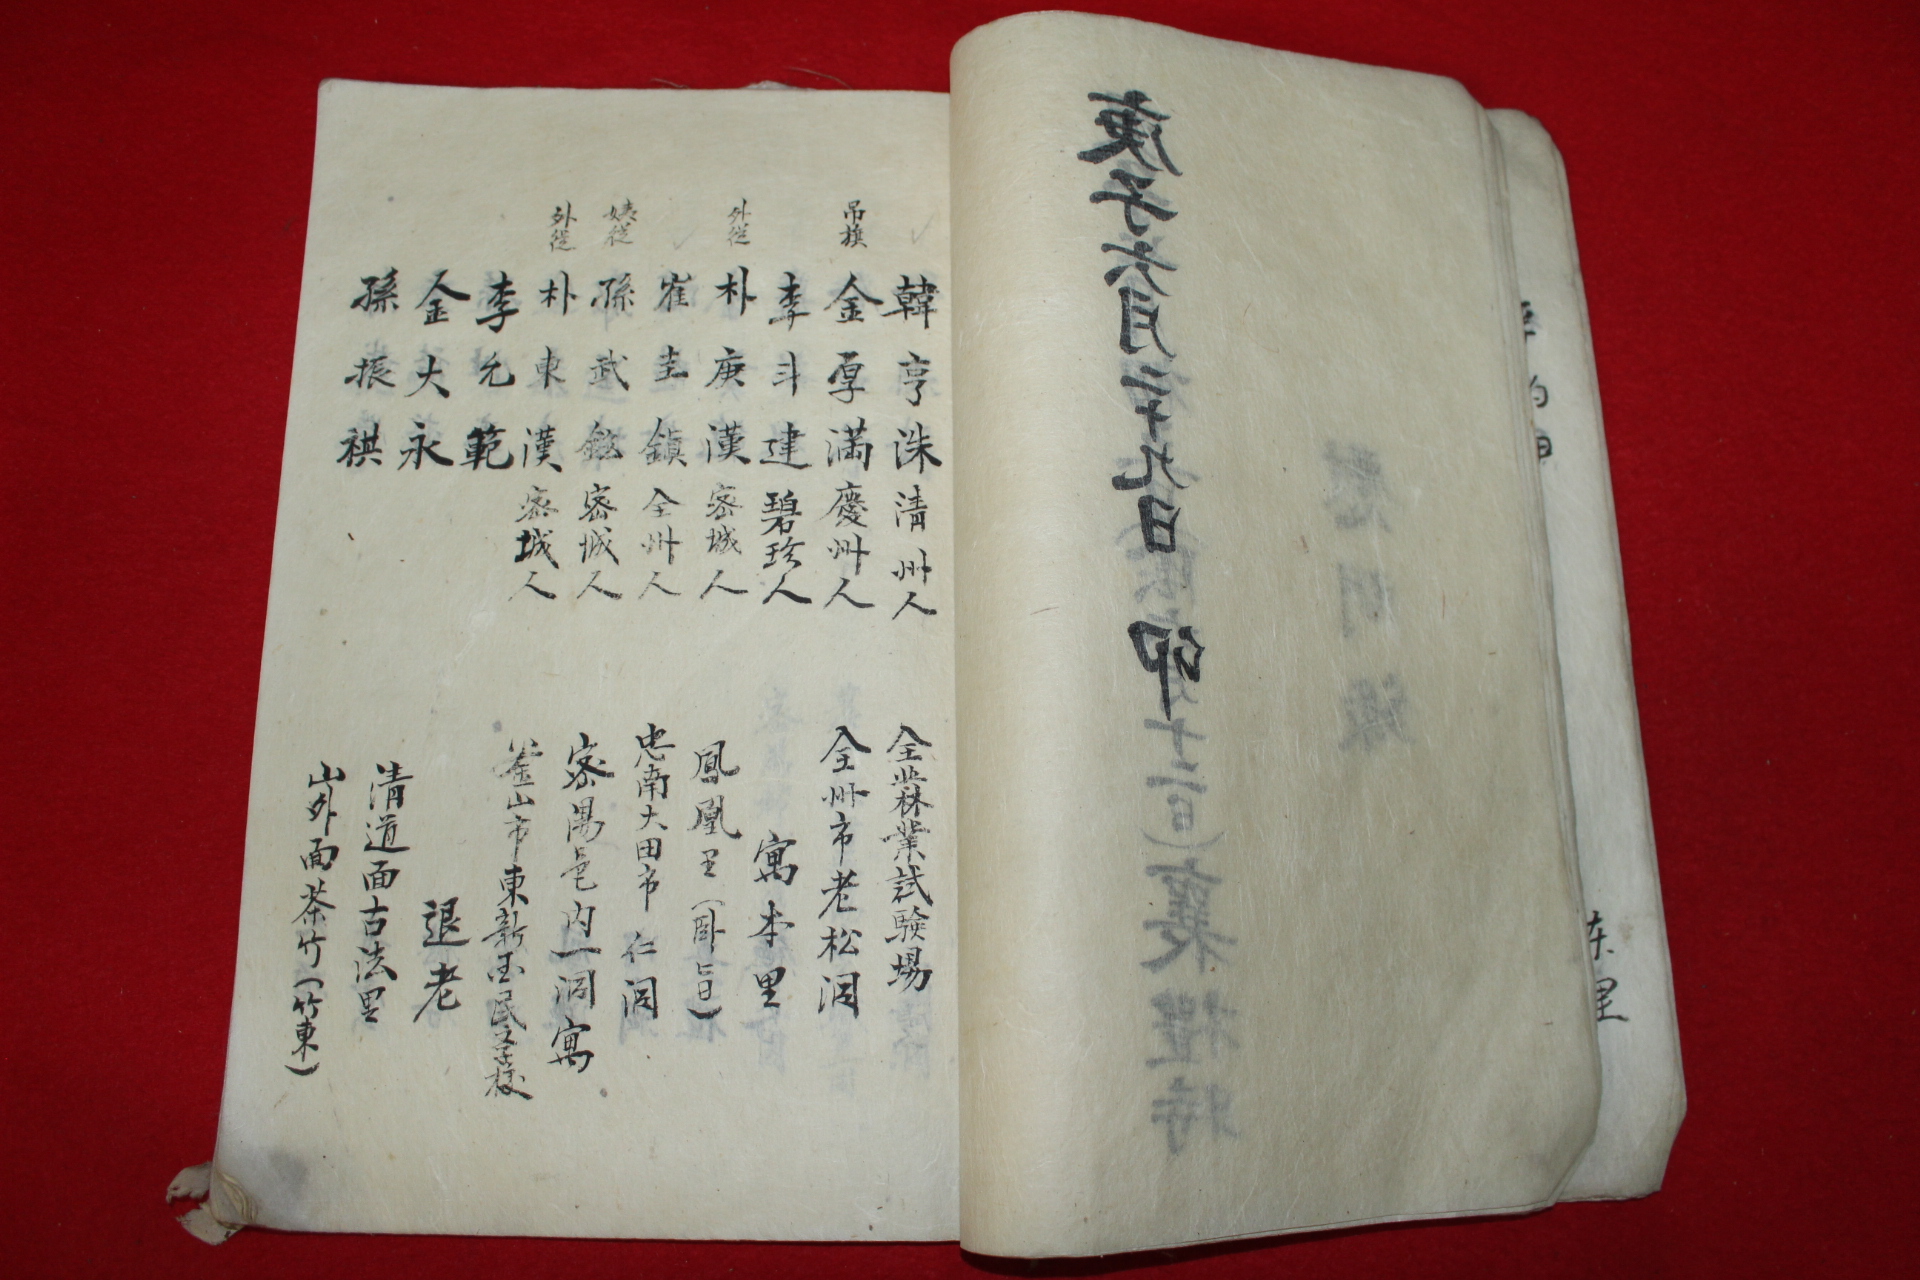 庚子六月二十九日 卯
十二日)襄禮時
慰問錄
韓亨洙 清州人 全北林業試驗場
吊旗 金厚滿 慶州人 全州市老松洞
李斗建 碧珍人 寓本里
外從 朴庚漢 密城人 鳳凰里(臥旨)
崔圭鎭 全州人 忠南大田市 仁洞
姨從 孫武鉉 密城人 密陽邑內一洞寓
外從 朴東漢 密城人 釜山市東新國民學校
李允範 退老
金大永 清道面古法里
孫振祺 山外面茶竹(竹東)